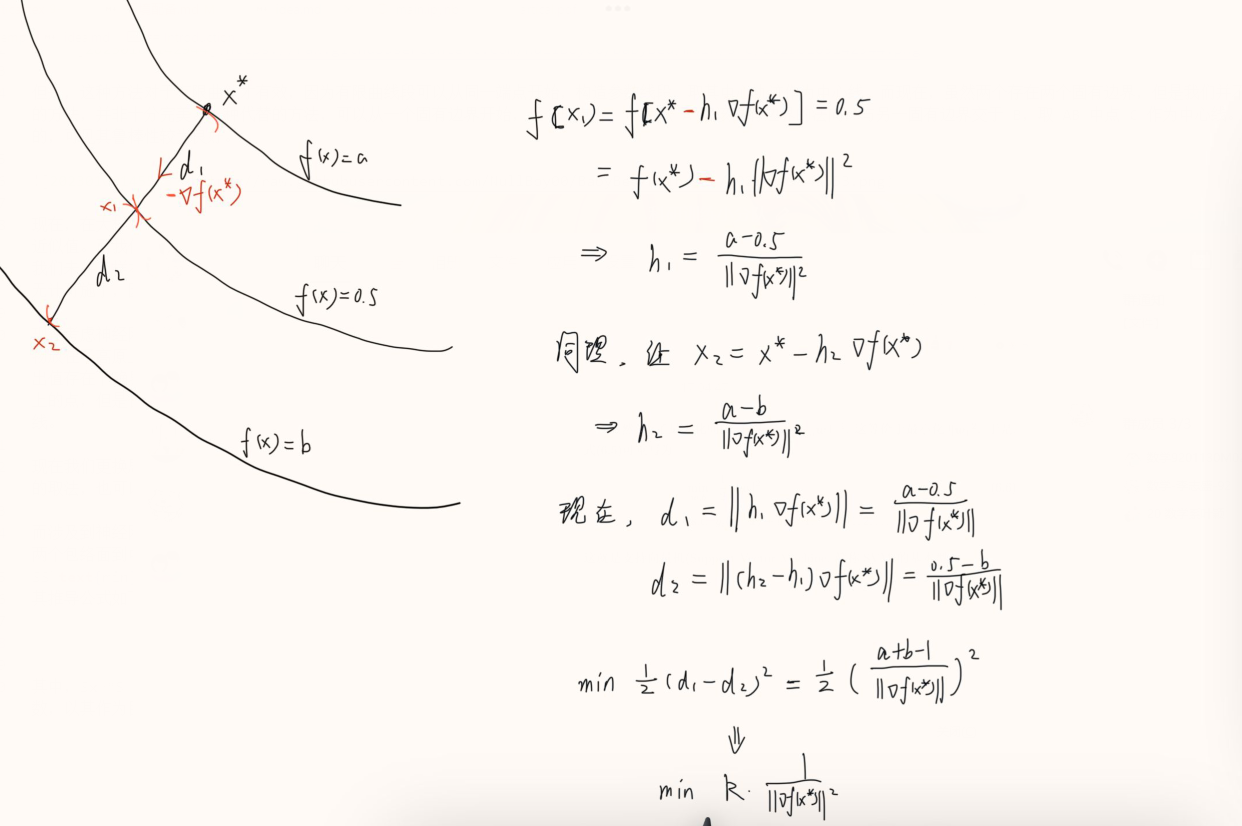 x*
f(x)=a
d₁
-∇f(x*)
x₁
d₂
f(x)=0.5
x₂
f(x)=b
f[x₁)= f[x* - h₁ ∇f(x*)] = 0.5
= f(x*) - h₁ ||∇f(x*)||²
⇒ h₁ = (a-0.5) / ||∇f(x*)||²
同理. 让 x₂ = x* - h₂ ∇f(x*)
⇒ h₂ = (a-b) / ||∇f(x*)||²
现在, d₁ = ||h₁ ∇f(x*)|| = (a-0.5) / ||∇f(x*)||
d₂ = ||(h₂-h₁)∇f(x*)|| = (0.5-b) / ||∇f(x*)||
min ½(d₁-d₂)² = ½((a+b-1) / ||∇f(x*)||)²
⇓
min k· 1 / ||∇f(x*)||²